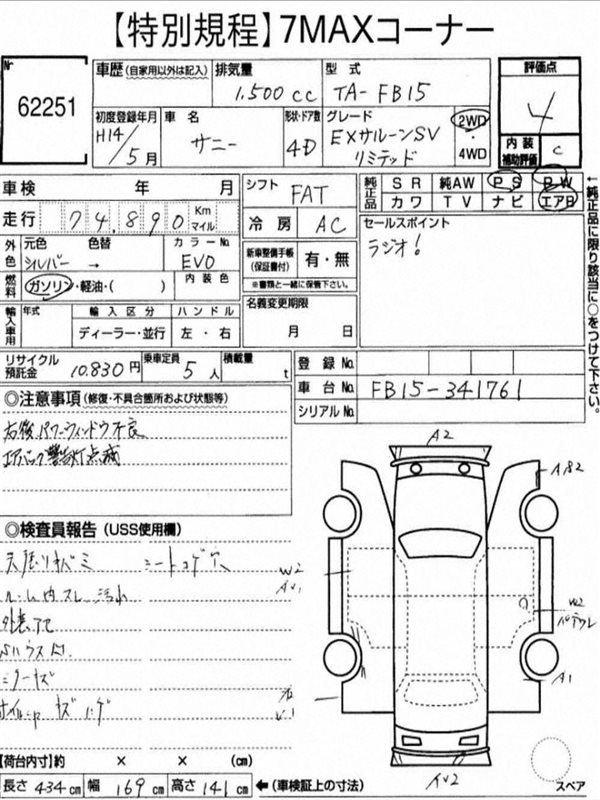 【特別規程】7MAXコーナー
№ 62251
車歴(自家用以外は記入)
排気量 1,500cc
型式 TA-FB15
評価点 4
初度登録年月 H14/5月
車名 サニー
形状・ドア数 4D
グレード EXサルーンSV リミテッド
2WD・4WD
内装補助評価 C
車検 年 月
シフト FAT
純正品 SR 純AW PS PW
カワ TV ナビ エアB
走行 74,890 Km マイル
冷房 AC
セールスポイント
ラジオ!
外色 元色 シルバー 色替 → カラーNo. EV0
新車整備手帳(保証書付) 有・無
※書類と一緒に保管下さい。
燃料 ガソリン・軽油・( ) 内装色
名義変更期限
月 日
輸入車用 年式 輸入区分 ハンドル
ディーラー・並行 左・右
リサイクル預託金 10,830円 乗車定員 5人 積載量 t
登録No.
車台No. FB15-341761
シリアルNo.
↑純正品に限り該当に○をつけて下さい。
◎注意事項(修復・不具合箇所および状態等)
右後パワーウィンドウ不良
エアバック警告灯点滅
◎検査員報告(USS使用欄)
シートコゲ穴
ルーム内スレ 汚れ
A2
A82
W2
A1
W2
A1
AV2
スペア
【荷台内寸】約 × × (cm)
長さ 434cm 幅 169cm 高さ 141cm ←(車検証上の寸法)